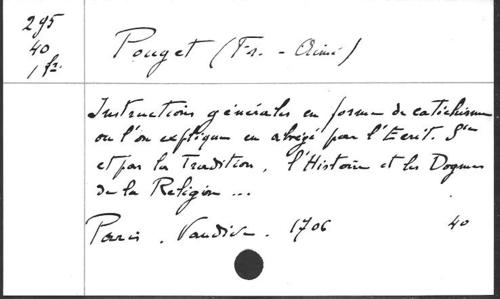 295
40
1 fr.
Pouget (Fr. - Aimé)
Instructions générales en forme de catéchisme
ou l'on explique en abrégé par l'Ecrit. Ste
et par la Tradition, l'Histoire et les Dogmes
de la Religion ...
Paris. Vaudive. 1706 40